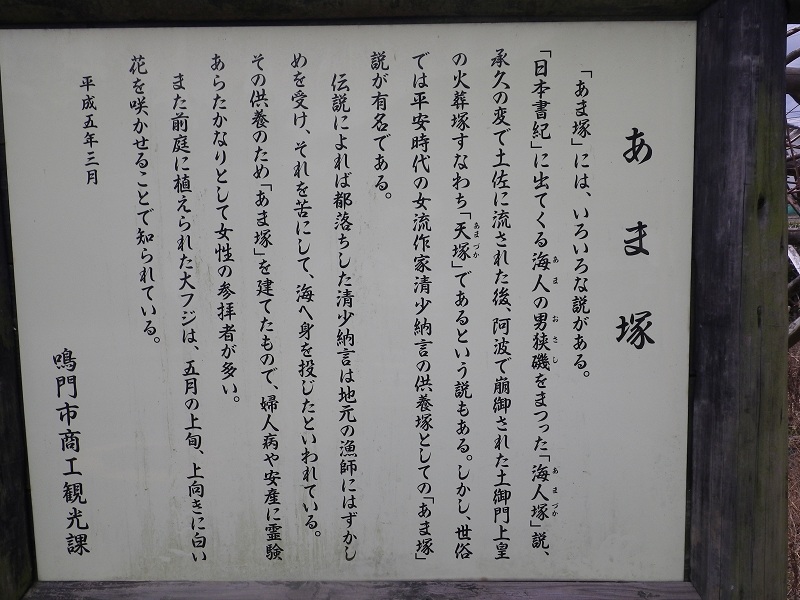 あま塚
「あま塚」には、いろいろな説がある。
「日本書紀」に出てくる海人の男狭磯をまつった「海人塚」説、
あま おさし あまづか
承久の変で土佐に流された後、阿波で崩御された土御門上皇
の火葬塚すなわち「天塚」であるという説もある。しかし、世俗
あまづか
では平安時代の女流作家清少納言の供養塚としての「あま塚」
説が有名である。
伝説によれば都落ちした清少納言は地元の漁師にはずかし
めを受け、それを苦にして、海へ身を投じたといわれている。
その供養のため「あま塚」を建てたもので、婦人病や安産に霊験
あらたかなりとして女性の参拝者が多い。
また前庭に植えられた大フジは、五月の上旬、上向きに白い
花を咲かせることで知られている。
平成五年三月
鳴門市商工観光課